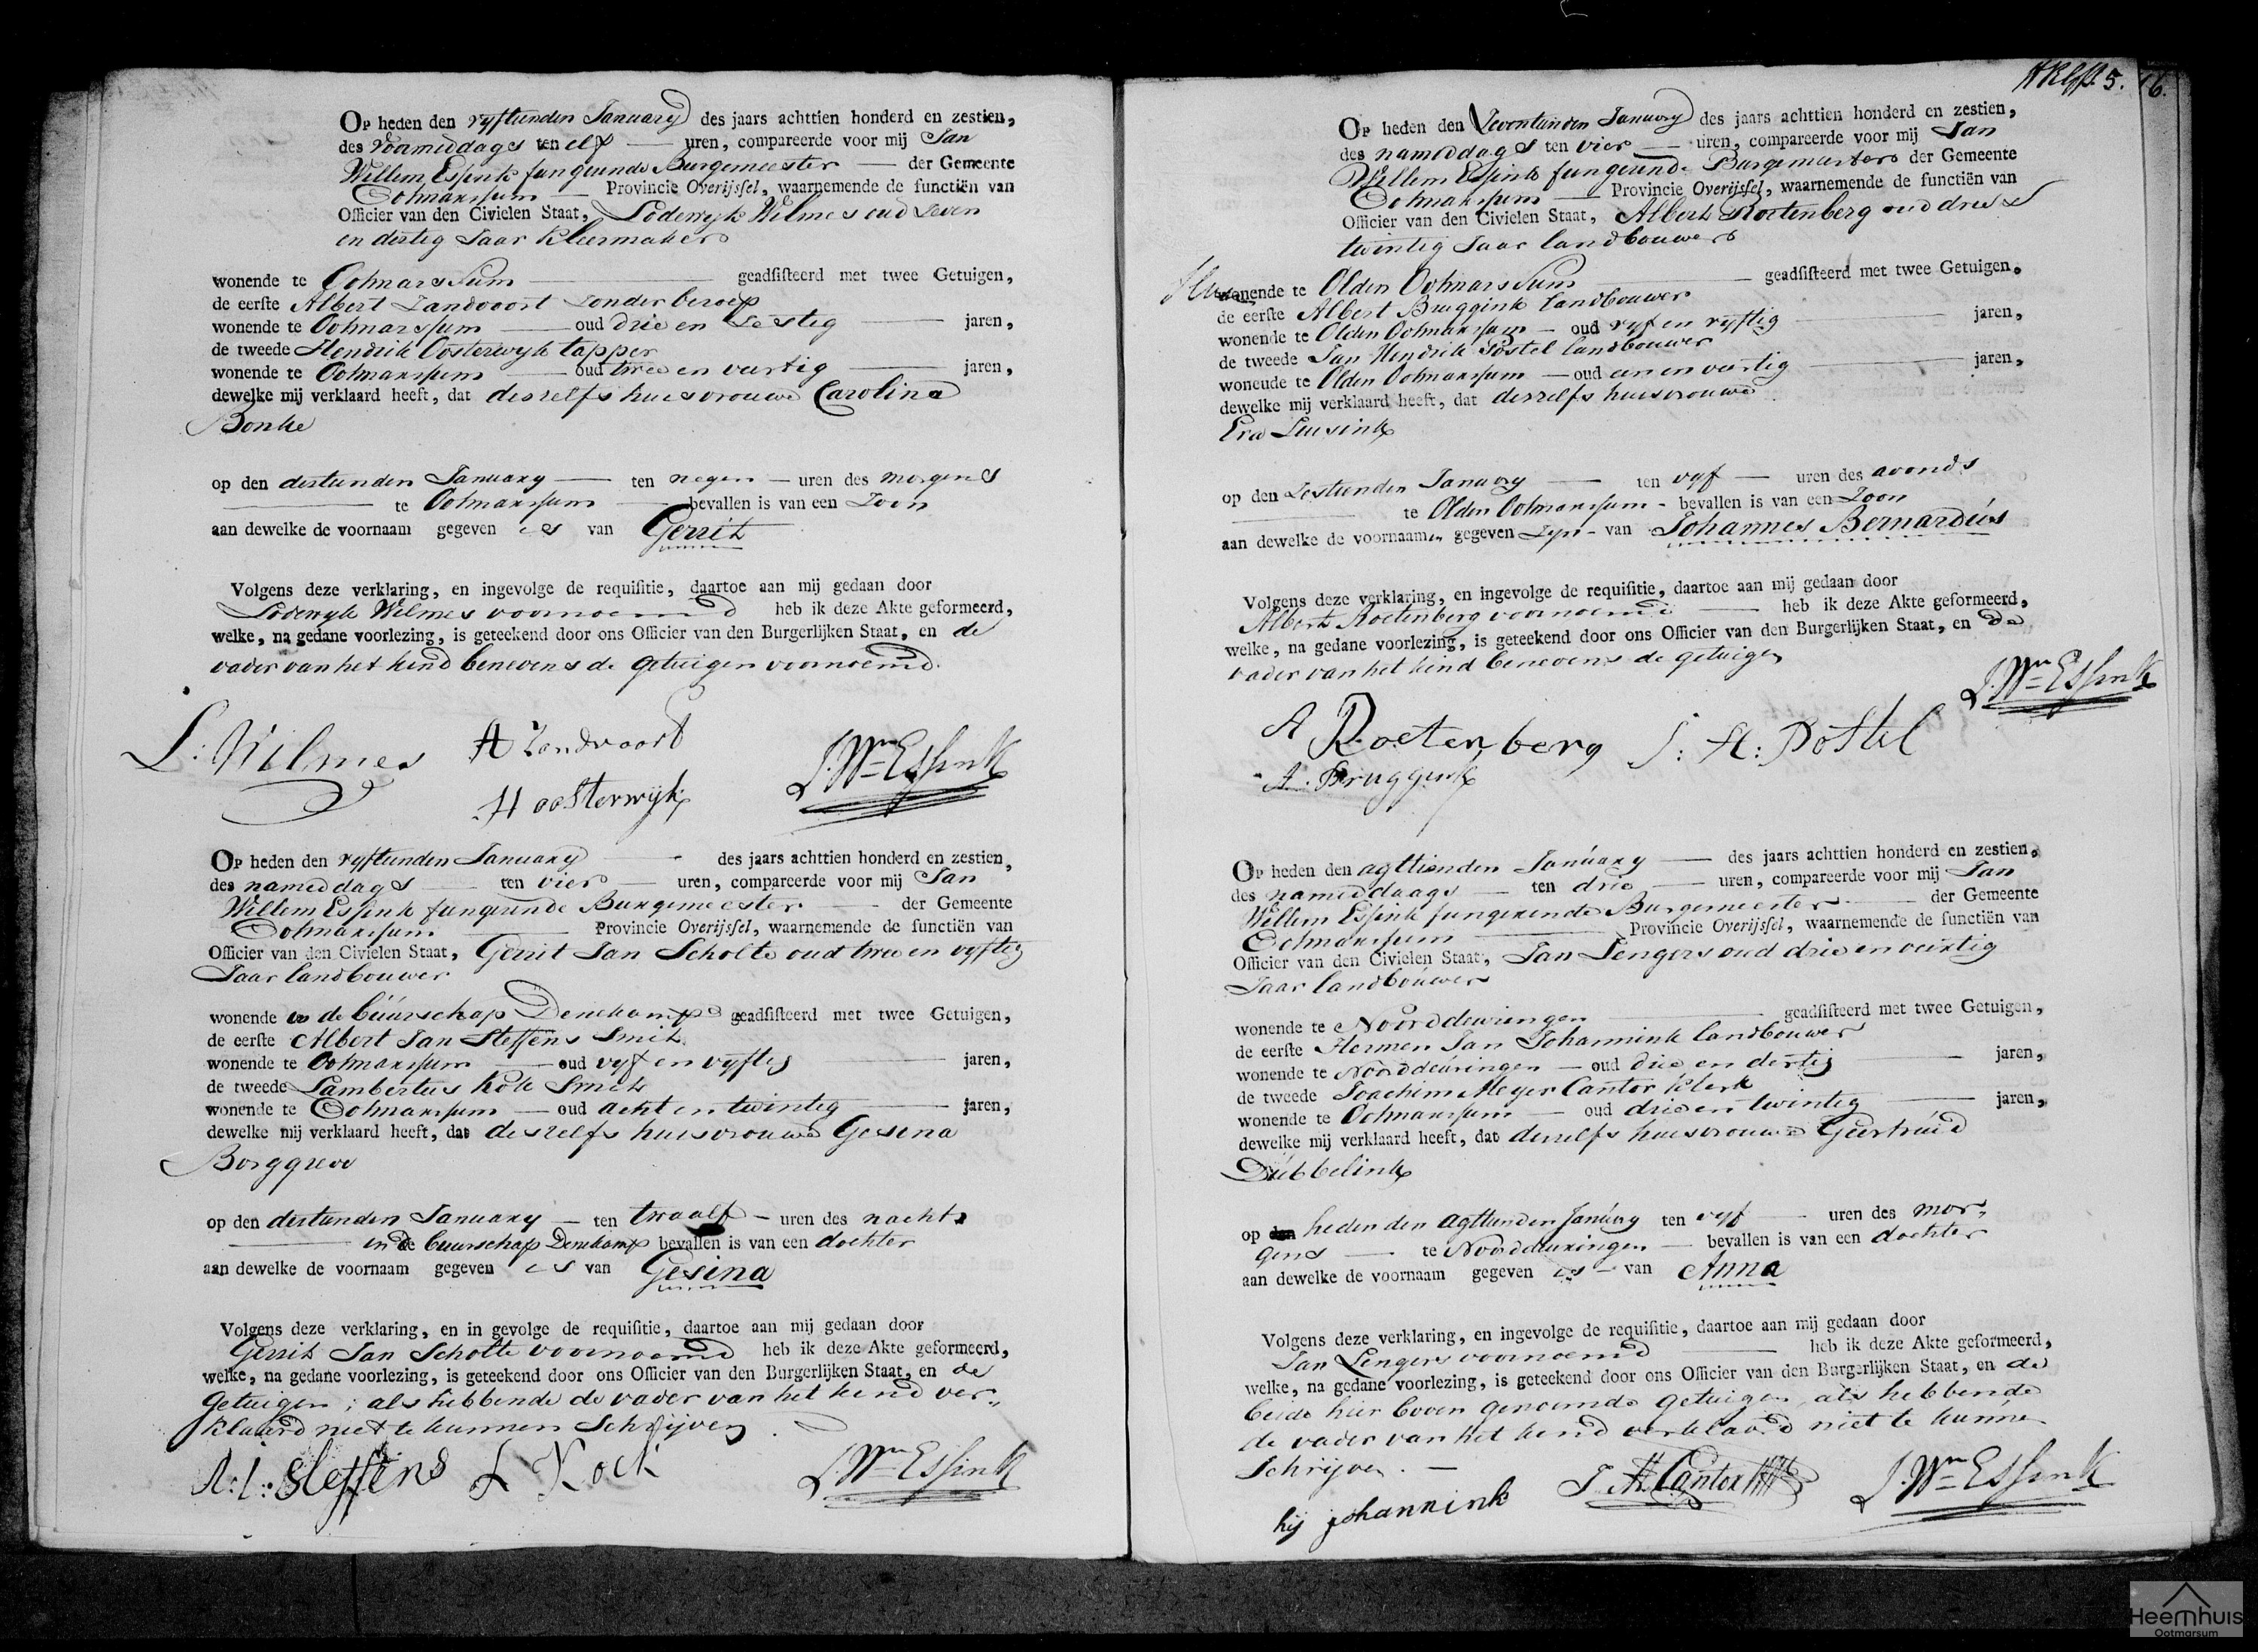 Op heden den vyftienden January des jaars achttien honderd en zestien,
des voormiddags ten elf uren, compareerde voor mij Jan
Willem Essink fungerende Burgemeester der Gemeente
Ootmarssum Provincie Overijssel, waarnemende de functiën van
Officier van den Civielen Staat, Lodewyk Wilmes oud seven
en dertig Jaar kleermaker
wonende te Ootmarssum geadsisteerd met twee Getuigen,
de eerste Albert Zandvoort zonder beroep
wonende te Ootmarssum oud drie en sestig jaren,
de tweede Hendrik Oosterwyk tapper
wonende te Ootmarssum oud twee en veertig jaren,
dewelke mij verklaard heeft, dat deszelfs huisvrouwe Carolina
Bonke
op den dertienden January ten negen uren des morgens
te Ootmarssum bevallen is van een Zoon
aan dewelke de voornaam gegeven is van Gerrit
Volgens deze verklaring, en ingevolge de requisitie, daartoe aan mij gedaan door
Lodewyk Wilmes voornoemd heb ik deze Akte geformeerd,
welke, na gedane voorlezing, is geteekend door ons Officier van den Burgerlijken Staat, en de
vader van het kind benevens de getuigen voornoemd.
L: Wilmes A Zandvoort
H oosterwyk J. Wm Essink
Op heden den vyftienden January des jaars achttien honderd en zestien,
des nameddags ten vier uren, compareerde voor mij Jan
Willem Essink fungerende Burgemeester der Gemeente
Ootmarssum Provincie Overijssel, waarnemende de functiën van
Officier van den Civielen Staat, Gerrit Jan Scholte oud twee en vyftig
Jaar landbouwer
wonende in de buurschap Denekamp geadsisteerd met twee Getuigen,
de eerste Albert Jan Steffens Smit
wonende te Ootmarssum oud vyf en vyftig jaren,
de tweede Lambertus Kok Smit
wonende te Ootmarssum oud acht en twintig jaren,
dewelke mij verklaard heeft, dat deszelfs huisvrouwe Gesina
Borggreve
op den dertienden January ten twaalf uren des nachts
in de buurschap Denekamp bevallen is van een dochter
aan dewelke de voornaam gegeven is van Gesina
Volgens deze verklaring, en in gevolge de requisitie, daartoe aan mij gedaan door
Gerrit Jan Scholte voornoemd heb ik deze Akte geformeerd,
welke, na gedane voorlezing, is geteekend door ons Officier van den Burgerlijken Staat, en de
Getuigen; als hebbende de vader van het kind ver-
klaard niet te kunnen Schrijven
A: I: Steffens L Kock J. Wm Essink
5. 6.
Op heden den Zeventienden January des jaars achttien honderd en zestien,
des namiddags ten vier uren, compareerde voor mij Jan
Willem Essink fungerende Burgemeester der Gemeente
Ootmarssum Provincie Overijssel, waarnemende de functiën van
Officier van den Civielen Staat, Albert Roetenberg oud drie &
twintig Jaar landbouwer
wonende te Olden Ootmarssum geadsisteerd met twee Getuigen,
de eerste Albert Bruggink landbouwer
wonende te Olden Ootmarssum oud vyf en vyftig jaren,
de tweede Jan Hendrik Postel landbouwer
wonende te Olden Ootmarssum oud een en veertig jaren,
dewelke mij verklaard heeft, dat deszelfs huisvrouwe
Eva Leusink
op den Zestienden January ten vyf uren des avonds
te Olden Ootmarssum bevallen is van een Zoon
aan dewelke de voornaamen gegeven zyn van Johannes Bernardús
Volgens deze verklaring, en ingevolge de requisitie, daartoe aan mij gedaan door
Albert Roetenberg voornoemd heb ik deze Akte geformeerd,
welke, na gedane voorlezing, is geteekend door ons Officier van den Burgerlijken Staat, en de
vader van het kind benevens de getuigen
J. Wm Essink
A Roetenberg J: H: Postel
A. Bruggink
Op heden den agttienden Janúary des jaars achttien honderd en zestien,
des nameddaags ten drie uren, compareerde voor mij Jan
Willem Essink fungerende Burgemeester der Gemeente
Ootmarssum Provincie Overijssel, waarnemende de functiën van
Officier van den Civielen Staat, Jan Lengers oud drie en veertig
Jaar landbouwer
wonende te Noorddeuringen geadsisteerd met twee Getuigen,
de eerste Hermen Jan Johannink landbouwer
wonende te Noorddeúringen oud drie en dertig jaren,
de tweede Joachim Meyer Cantor klerk
wonende te Ootmarssum oud drie en twintig jaren,
dewelke mij verklaard heeft, dat deszelfs huisvrouwe Geertrúid
Dubbelink
op heden den agttienden Janúary ten vyf uren des mor-
gens te Noorddeuringen bevallen is van een dochter
aan dewelke de voornaam gegeven is van Anna
Volgens deze verklaring, en ingevolge de requisitie, daartoe aan mij gedaan door
Jan Lengers voornoemd heb ik deze Akte geformeerd,
welke, na gedane voorlezing, is geteekend door ons Officier van den Burgerlijken Staat, en de
beide hier boven genoemde getuigen, als hebbende
de vader van het kind verklaard niet te kunnen
Schrijven.
hij johannink J M Cantor J. Wm Essink
Heemhuis
Ootmarsum